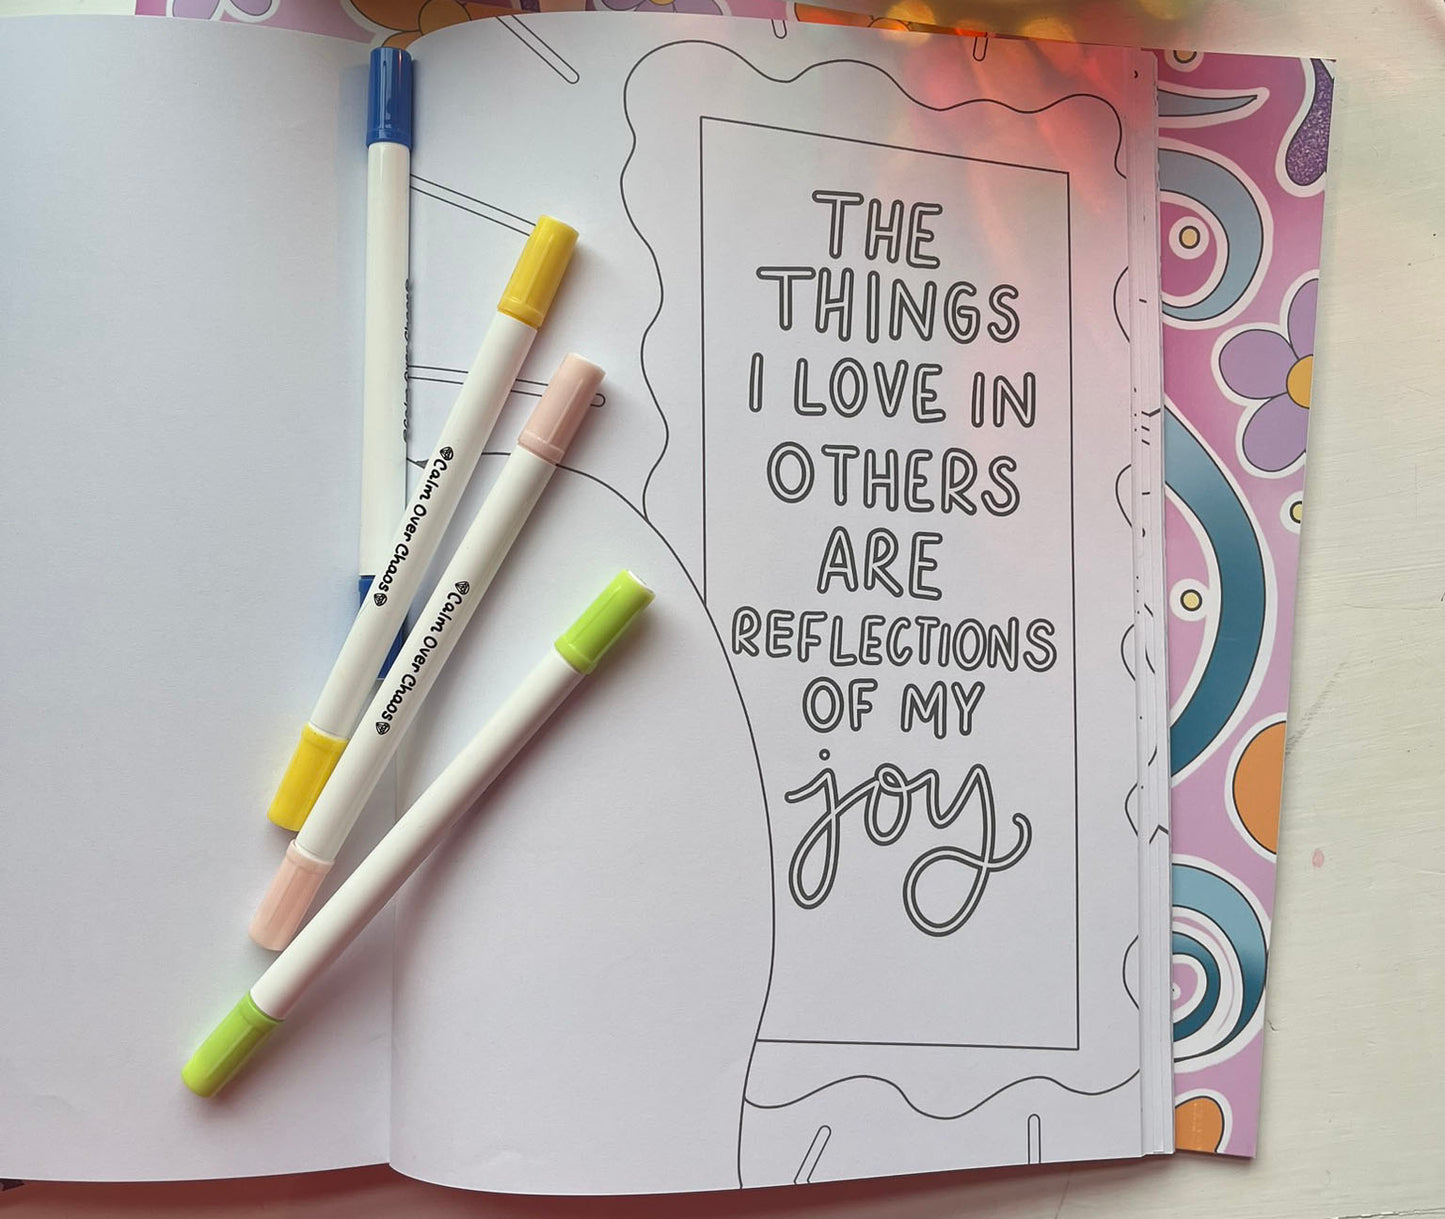 THE
THINGS
I LOVE IN
OTHERS
ARE
REFLECTIONS
OF MY
joy
Calm Over Chaos
Calm Over Chaos